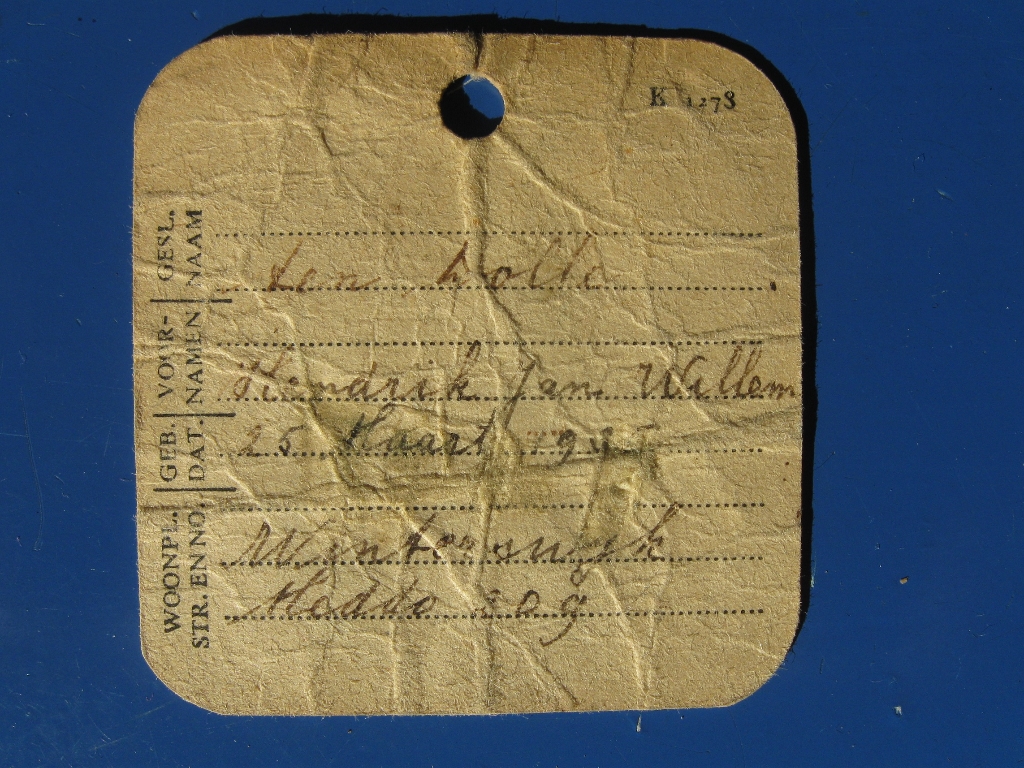 K 1278
GESL. NAAM
ten Dolle
VOOR- NAMEN
Hendrik Jan Willem
GEB. DAT.
25 Maart
WOONPL.
STR. EN NO.
Winterswijk
Meddo 209